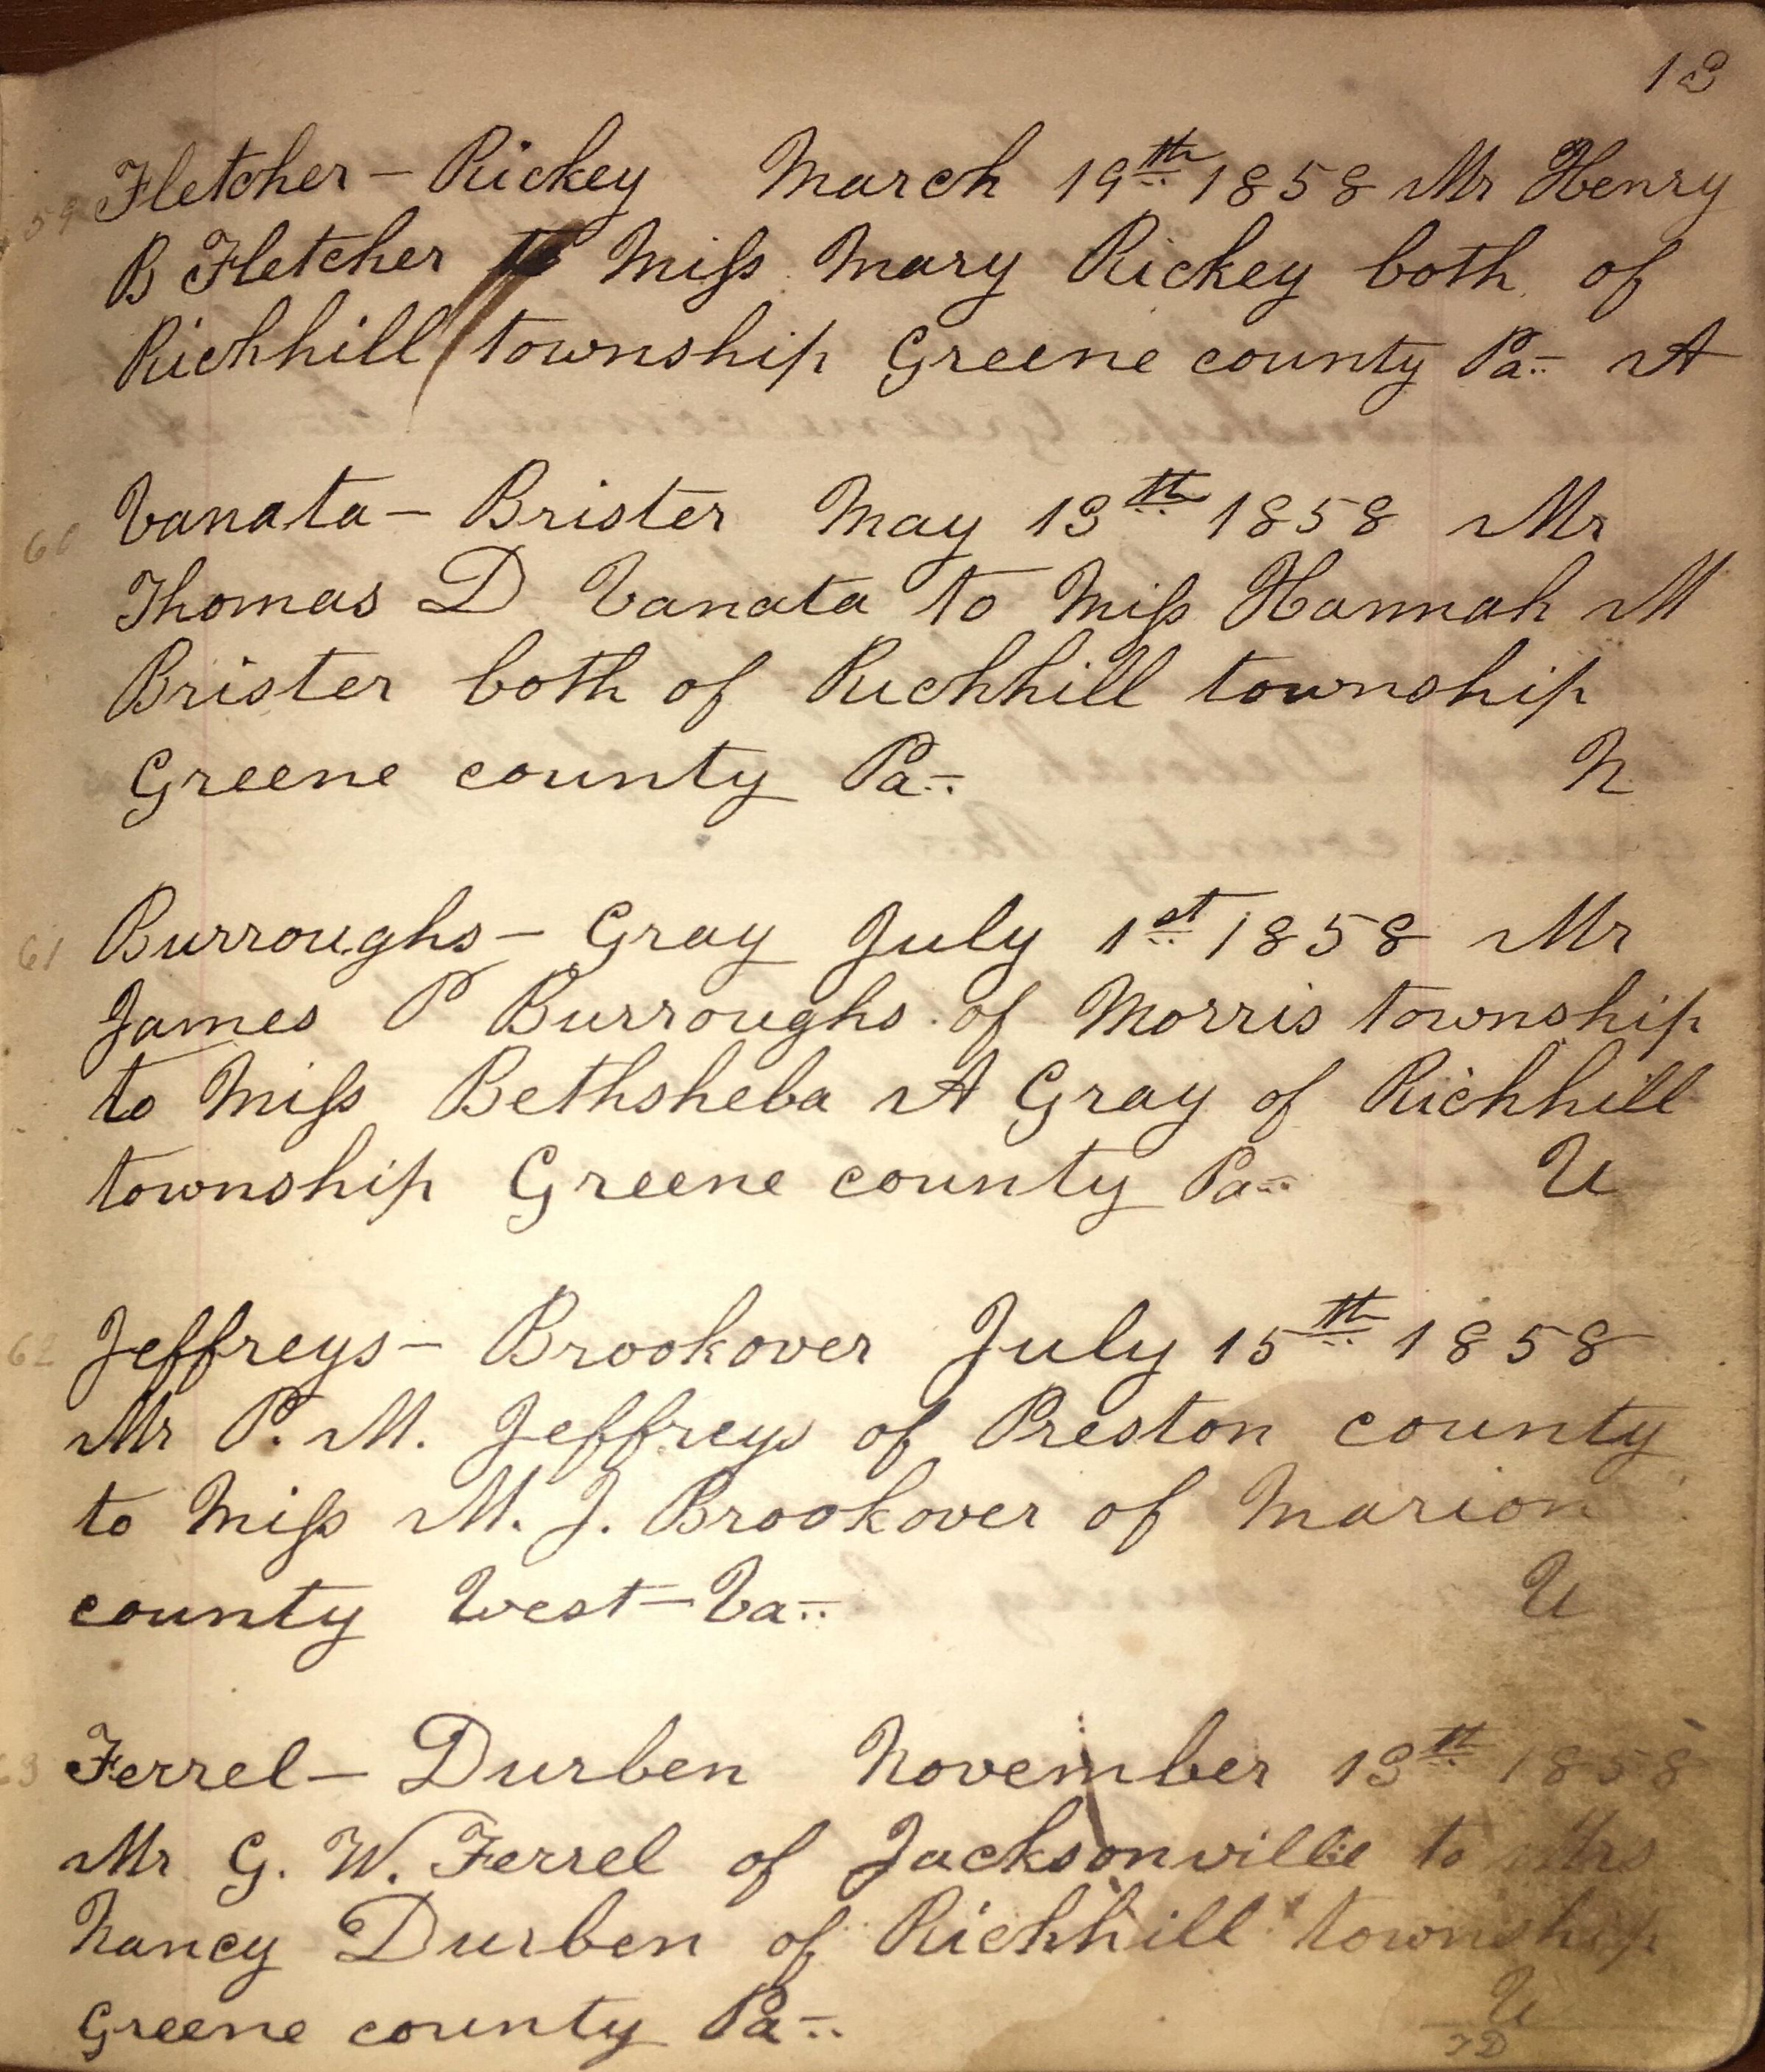 13
59 Fletcher – Rickey March 19th 1858 Mr Henry
B Fletcher to Miss Mary Rickey both of
Richhill township Greene county Pa A
60 Vanata – Brister May 13th 1858 Mr
Thomas D Vanata to Miss Hannah M
Brister both of Richhill township
Greene county Pa N
61 Burroughs – Gray July 1st 1858 Mr
James P Burroughs of Morris township
to Miss Bethsheba A Gray of Richhill
township Greene county Pa U
62 Jeffreys – Brookover July 15th 1858
Mr P. M. Jeffreys of Preston county
to Miss M. J. Brookover of Marion
county West – Va U
63 Ferrel – Durben November 13th 1858
Mr G. W. Ferrel of Jacksonville to Mrs
Nancy Durben of Richhill township
Greene county Pa U